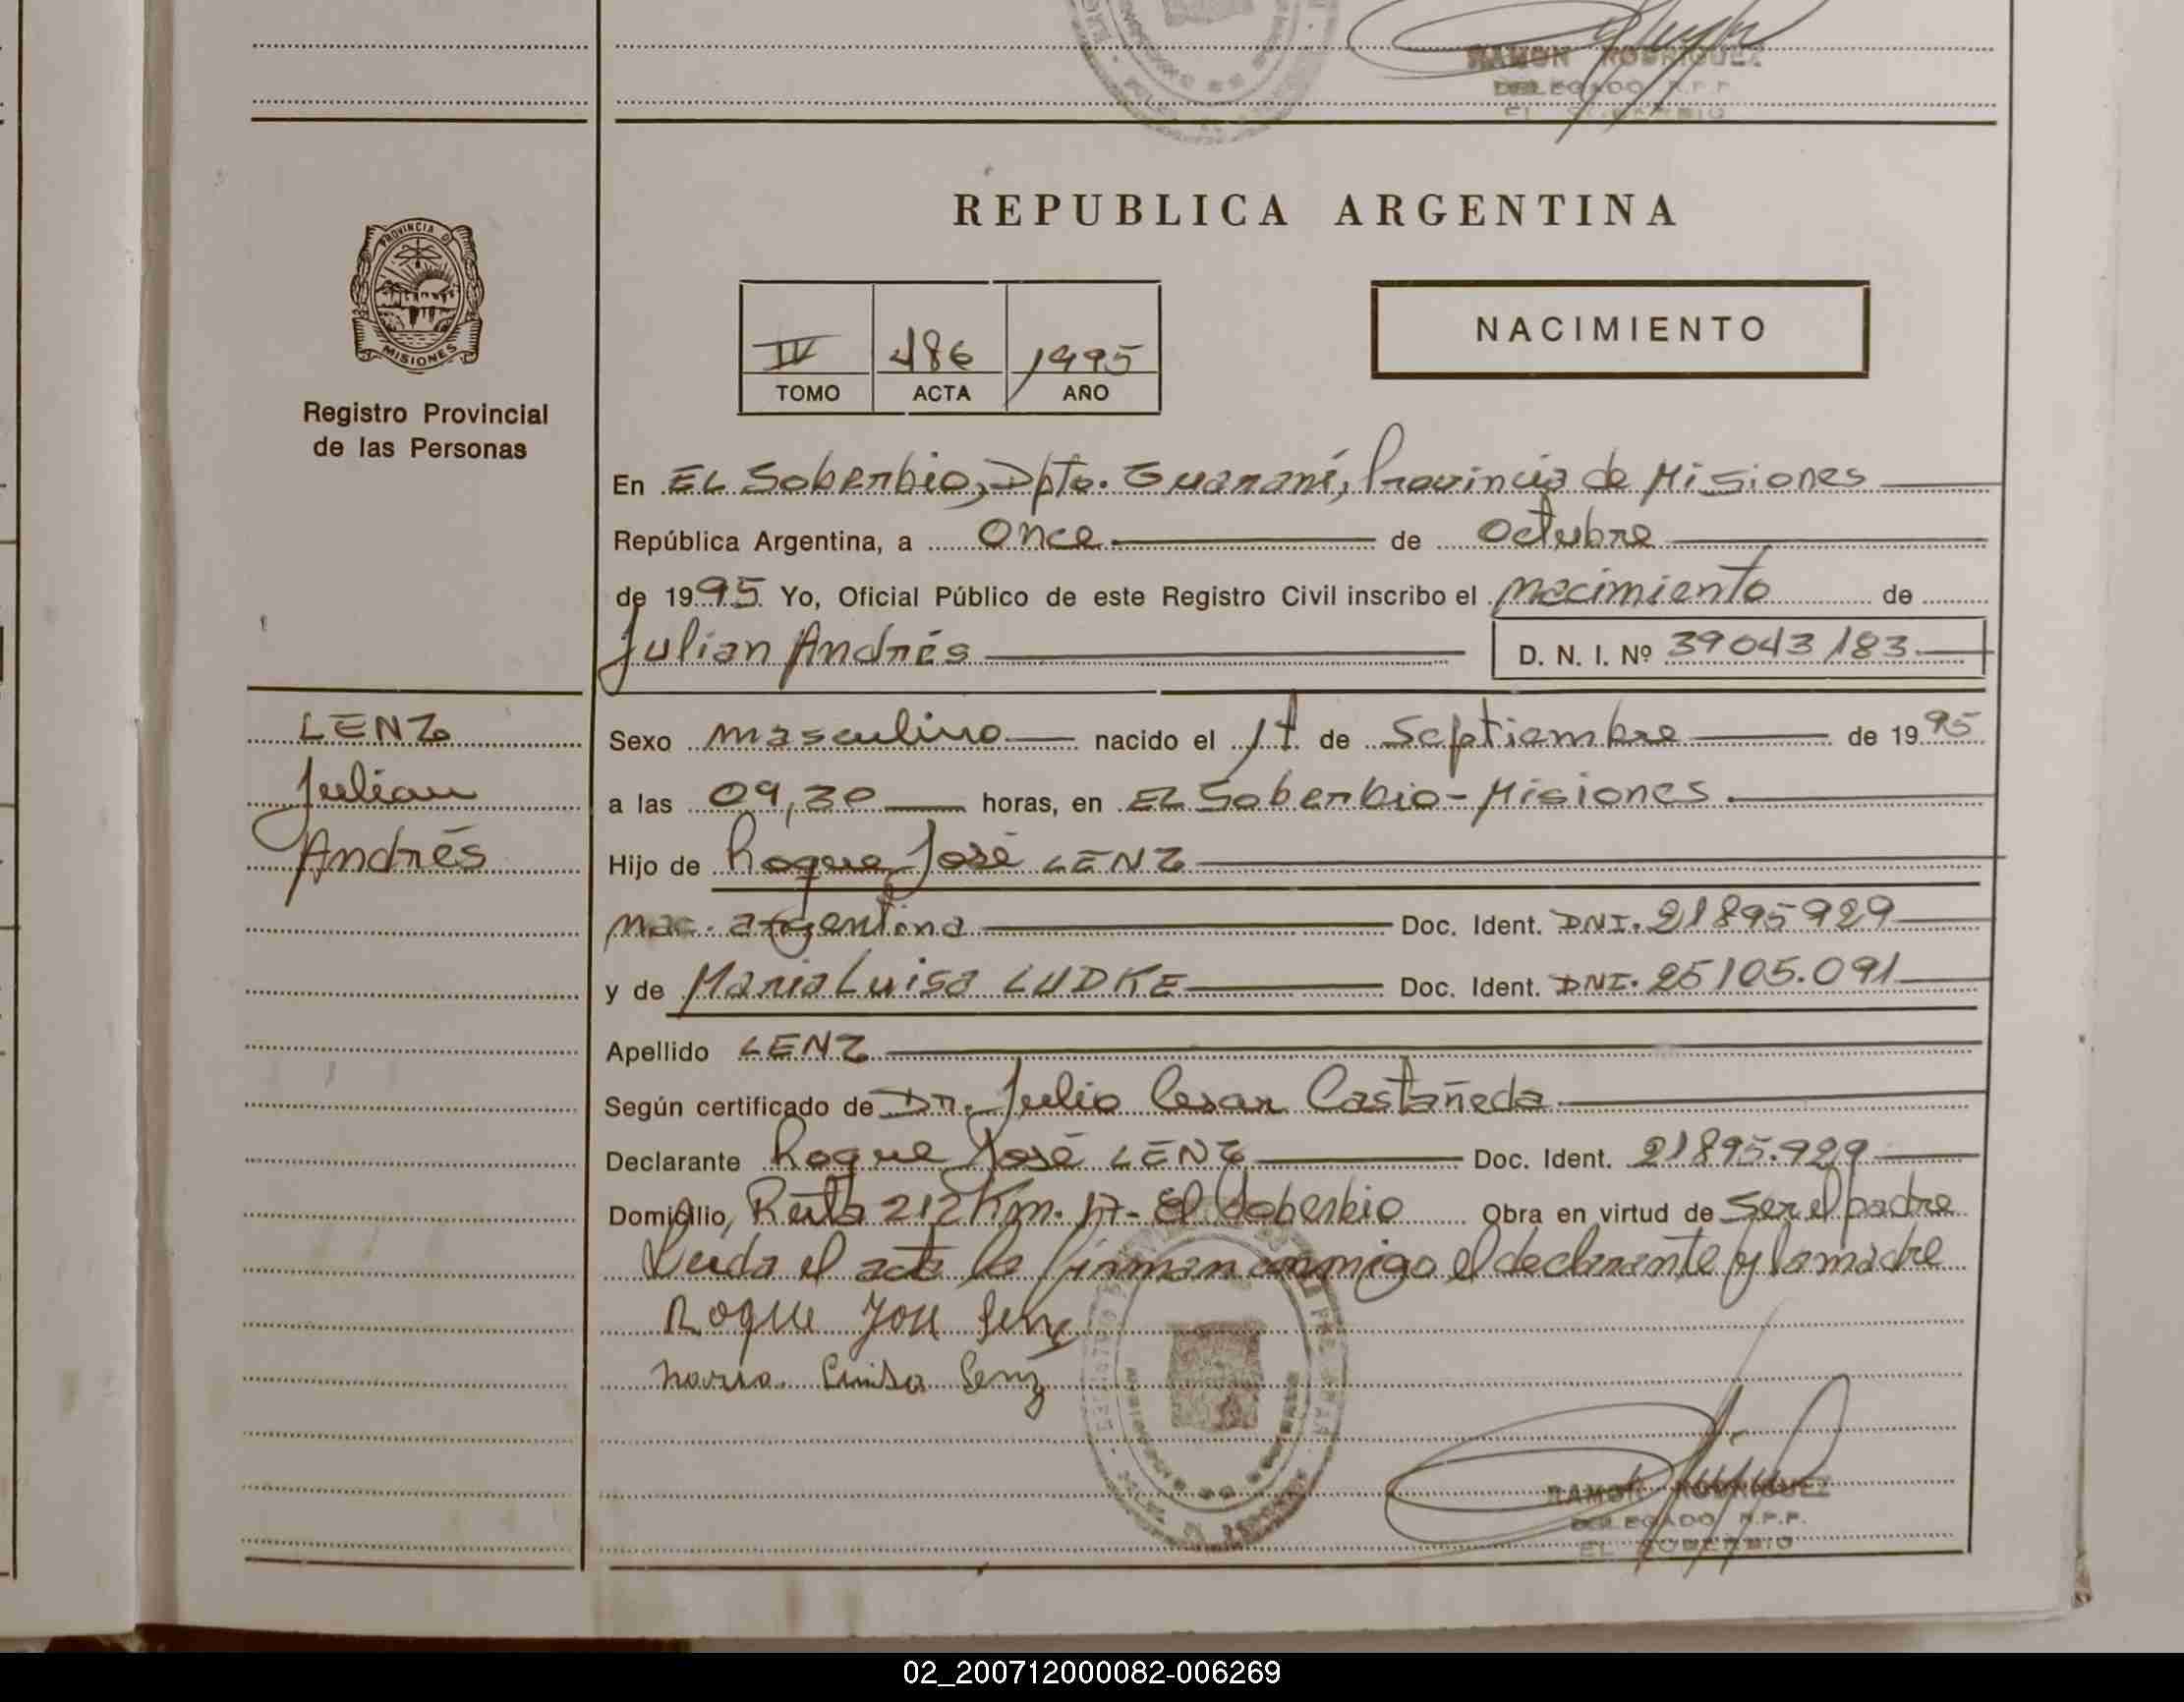 RAMON RODRIGUEZ
DELEGADO R.P.P.
EL SOBERBIO
REPUBLICA ARGENTINA
PROVINCIA D
MISIONES
Registro Provincial
de las Personas
IV 486 1995
TOMO ACTA AÑO
NACIMIENTO
En EL Soberbio, Dpto. Guaraní, Provincia de Misiones
República Argentina, a Once de Octubre
de 1995 Yo, Oficial Público de este Registro Civil inscribo el nacimiento de
Julian Andrés D. N. I. Nº 39043183
LENZ
Julian
Andrés
Sexo masculino nacido el 17 de Septiembre de 1995
a las 09,30 horas, en EL Soberbio - Misiones
Hijo de Roque José LENZ
nac. argentina Doc. Ident. DNI. 21895929
y de Maria Luisa LUDKE Doc. Ident. DNI. 25105.091
Apellido LENZ
Según certificado de Dr. Julio Cesar Castañeda
Declarante Roque José LENZ Doc. Ident. 21895.929
Domicilio, Ruta 212 Km. 17 - El Soberbio Obra en virtud de Ser el padre
Leida el acta la firman conmigo el declarante y la madre
Roque José Lenz
Maria Luisa Lenz
RAMON RODRIGUEZ
DELEGADO R.P.P.
EL SOBERBIO
02_200712000082-006269